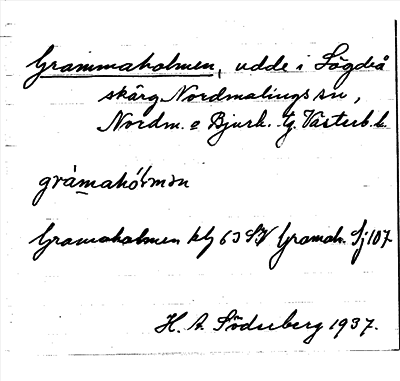 Grammaholmen, udde i Lögdeå
skärg. Nordmalings sn,
Nordm. o Bjurh. tg. Västerb. l.
gràmahól̀mən
Gramaholmen klg 63 SV Gramah. Sj 107
H. A. Söderberg 1937.